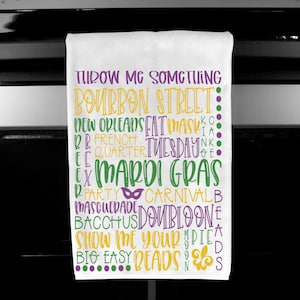 THROW ME SOMETHING
BOURBON STREET
NEW ORLEANS
FAT
MASK
KING
CAKE
BEER
FRENCH
QUARTER
TUESDAY
MARDI GRAS
PARTY
CARNIVAL
MASQUERADE
DOUBLOON
BEADS
BACCHUS
SHOW ME YOUR
PIE
BIG EASY
BEADS